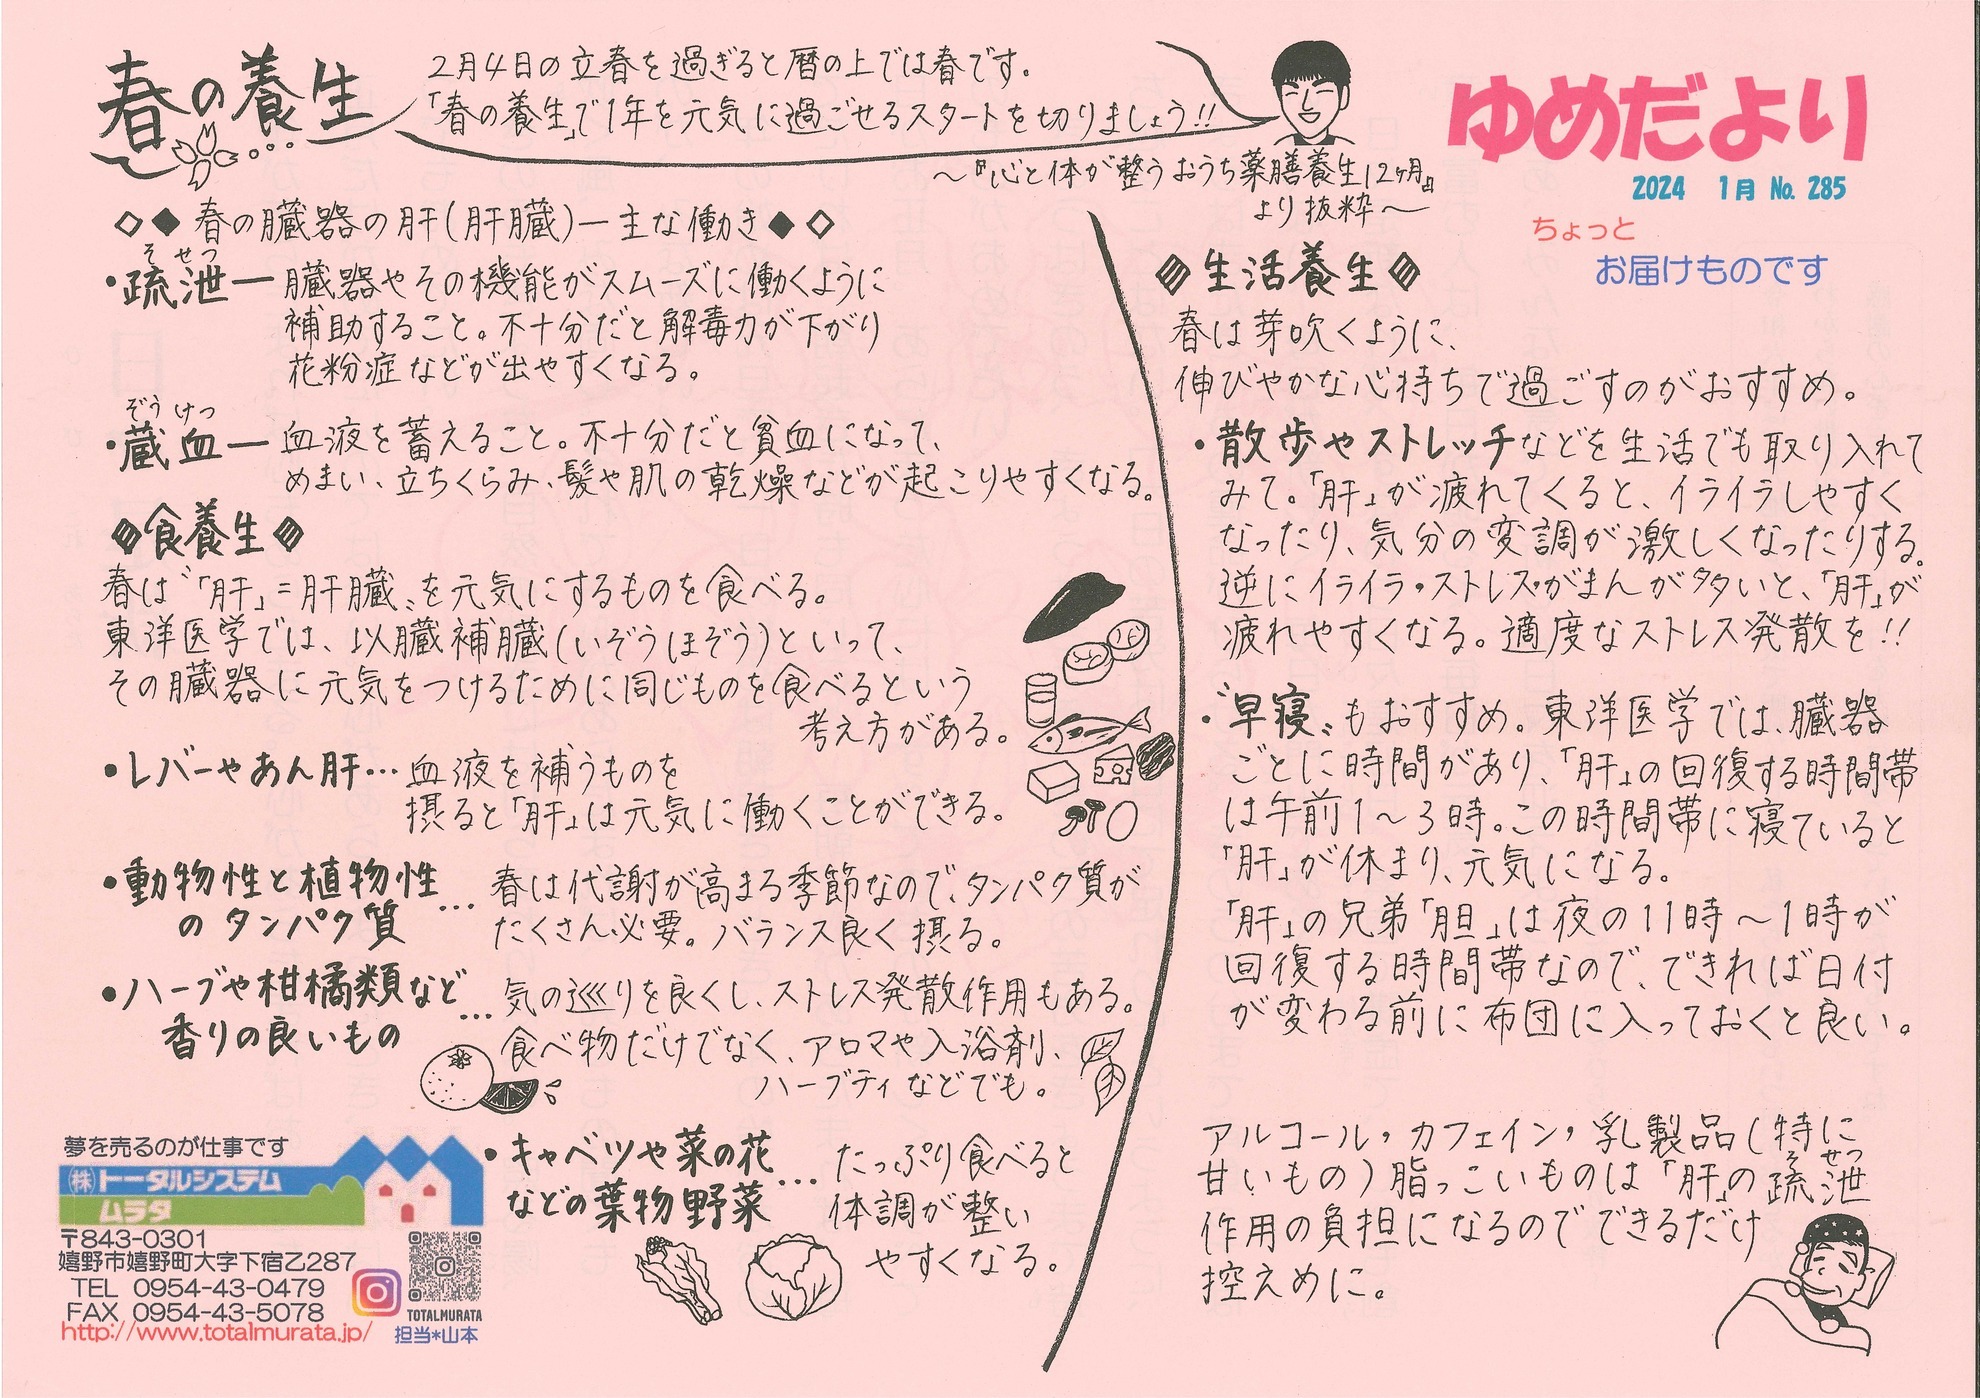 春の養生
2月4日の立春を過ぎると暦の上では春です。
「春の養生」で1年を元気に過ごせるスタートを切りましょう!!
〜『心と体が整うおうち薬膳養生12ヶ月』
より抜粋〜
ゆめだより
2024 1月 No. 285
ちょっと
お届けものです
◇◆春の臓器の肝(肝臓)ー主な働き◆◇
そせつ
・疏泄ー臓器やその機能がスムーズに働くように
補助すること。不十分だと解毒力が下がり
花粉症などが出やすくなる。
ぞうけつ
・蔵血ー血液を蓄えること。不十分だと貧血になって、
めまい、立ちくらみ、髪や肌の乾燥などが起こりやすくなる。
食養生
春は〝「肝」=肝臓〟を元気にするものを食べる。
東洋医学では、以臓補臓(いぞうほぞう)といって、
その臓器に元気をつけるために同じものを食べるという
考え方がある。
・レバーやあん肝…血液を補うものを
摂ると「肝」は元気に働くことができる。
・動物性と植物性
のタンパク質…
春は代謝が高まる季節なので、タンパク質が
たくさん必要。バランス良く摂る。
・ハーブや柑橘類など
香りの良いもの…
気の巡りを良くし、ストレス発散作用もある。
食べ物だけでなく、アロマや入浴剤、
ハーブティなどでも。
・キャベツや菜の花
などの葉物野菜…
たっぷり食べると
体調が整い
やすくなる。
生活養生
春は芽吹くように、
伸びやかな心持ちで過ごすのがおすすめ。
・散歩やストレッチなどを生活でも取り入れて
みて。「肝」が疲れてくると、イライラしやすく
なったり、気分の変調が激しくなったりする。
逆にイライラ・ストレスがまんが多いと、「肝」が
疲れやすくなる。適度なストレス発散を!!
・〝早寝〟もおすすめ。東洋医学では、臓器
ごとに時間があり、「肝」の回復する時間帯
は午前1〜3時。この時間帯に寝ていると
「肝」が休まり、元気になる。
「肝」の兄弟「胆」は夜の11時〜1時が
回復する時間帯なので、できれば日付
が変わる前に布団に入っておくと良い。
アルコール・カフェイン・乳製品(特に
甘いもの)脂っこいものは「肝」の疏泄
そせつ
作用の負担になるのでできるだけ
控えめに。
夢を売るのが仕事です
㈱トータルシステム
ムラタ
〒843-0301
嬉野市嬉野町大字下宿乙287
TEL 0954-43-0479
FAX 0954-43-5078
http://www.totalmurata.jp/
TOTALMURATA
担当*山本